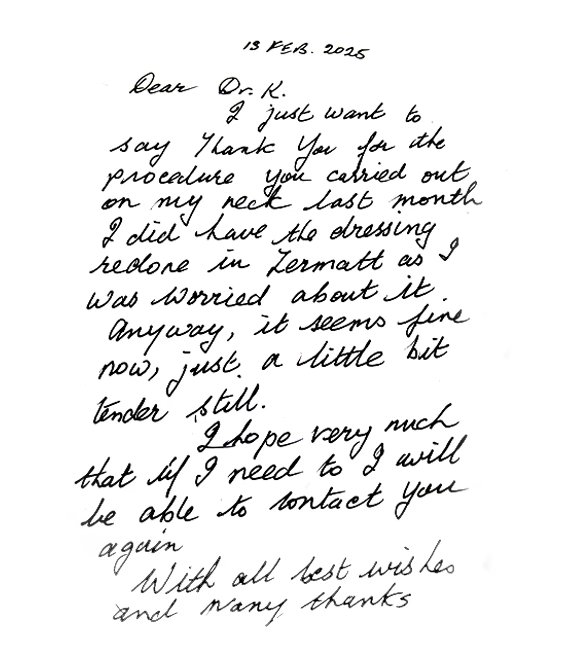 13 FEB. 2025
Dear Dr. K.
I just want to
say Thank You for the
procedure you carried out
on my neck last month
I did have the dressing
redone in Zermatt as I
was worried about it.
Anyway, it seems fine
now, just a little bit
tender still.
I hope very much
that if I need to I will
be able to contact you
again
With all best wishes
and many thanks